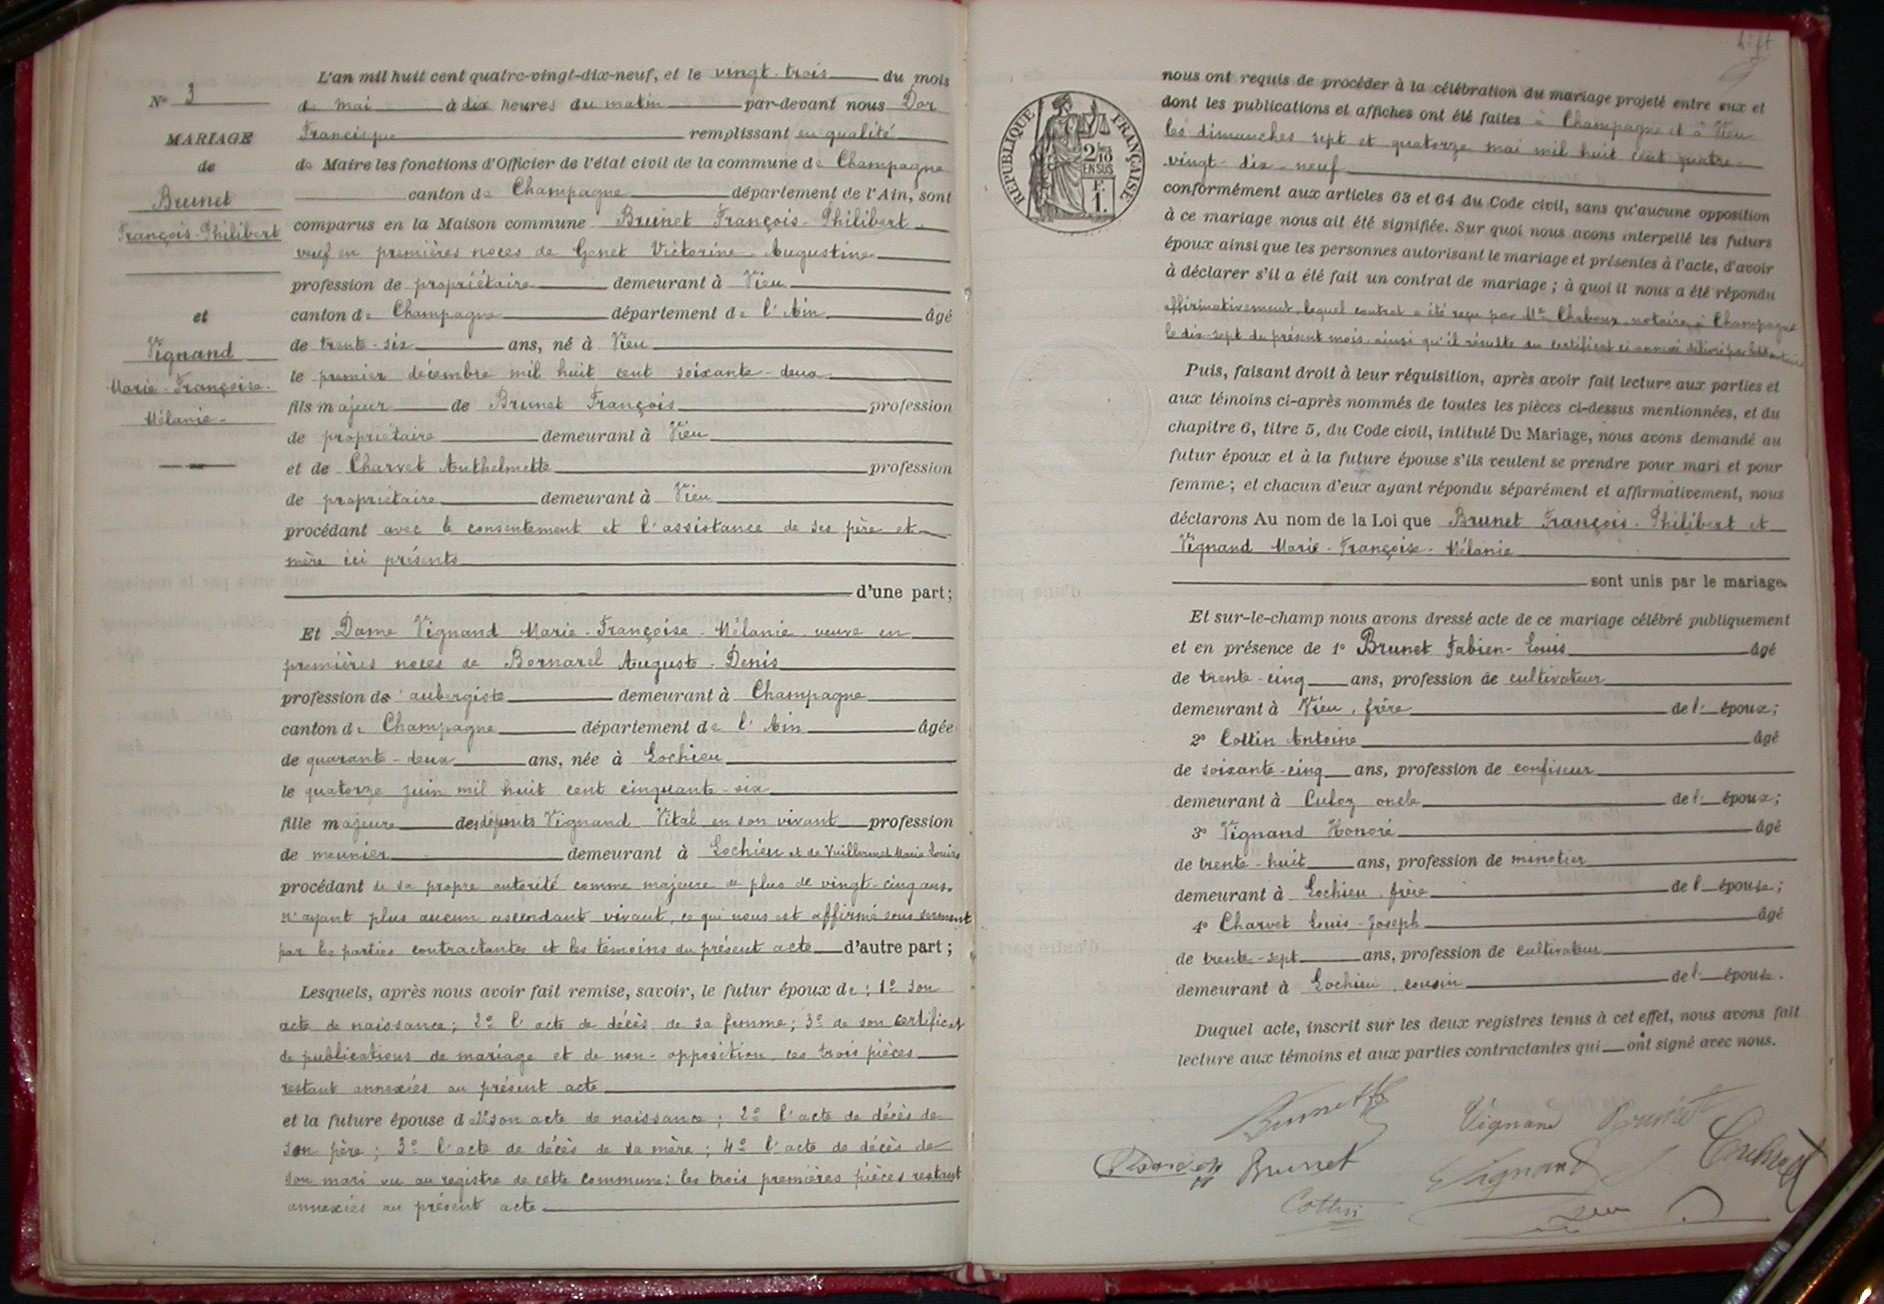 N° 3
MARIAGE
de
Brunet
François-Philibert
et
Vignand
Marie-Françoise-
Mélanie-
L'an mil huit cent quatre-vingt-dix-neuf, et le vingt-trois du mois
de mai à dix heures du matin par-devant nous Dor
Francisque remplissant en qualité
de Maire les fonctions d'Officier de l'état civil de la commune de Champagne
canton de Champagne département de l'Ain, sont
comparus en la Maison commune Brunet François-Philibert
veuf en premières noces de Genet Victorine-Augustine
profession de propriétaire demeurant à Vieu
canton de Champagne département de l'Ain âgé
de trente-six ans, né à Vieu
le premier décembre mil huit cent soixante-deux
fils majeur de Brunet François profession
de propriétaire demeurant à Vieu
et de Charvet Anthelmette profession
de propriétaire demeurant à Vieu
procédant avec le consentement et l'assistance de ses père et
mère ici présents
d'une part;
Et Dame Vignand Marie-Françoise-Mélanie veuve en
premières noces de Bornarel Auguste-Denis
profession de aubergiste demeurant à Champagne
canton de Champagne département de l'Ain âgée
de quarante-deux ans, née à Lochieu
le quatorze juin mil huit cent cinquante-six
fille majeure des défunts Vignand Vital en son vivant profession
de meunier demeurant à Lochieu et de Vuillermet Marie Louise
procédant de sa propre autorité comme majeure de plus de vingt-cinq ans,
n'ayant plus aucun ascendant vivant, ce qui nous est affirmé sous serment
par les parties contractantes et les témoins du présent acte d'autre part;
Lesquels, après nous avoir fait remise, savoir, le futur époux de: 1° son
acte de naissance; 2° l'acte de décès de sa femme; 3° de son certificat
de publications de mariage et de non-opposition, ces trois pièces
restant annexées au présent acte
et la future épouse de 1° son acte de naissance; 2° l'acte de décès de
son père; 3° l'acte de décès de sa mère; 4° l'acte de décès de
son mari vu au registre de cette commune; les trois premières pièces restant
annexées au présent acte
REPUBLIQUE FRANÇAISE
2/10 EN SUS
1 F.
nous ont requis de procéder à la célébration du mariage projeté entre eux et
dont les publications et affiches ont été faites à Champagne et à Vieu
les dimanches sept et quatorze mai mil huit cent quatre-
vingt-dix-neuf
conformément aux articles 63 et 64 du Code civil, sans qu'aucune opposition
à ce mariage nous ait été signifiée. Sur quoi nous avons interpellé les futurs
époux ainsi que les personnes autorisant le mariage et présentes à l'acte, d'avoir
à déclarer s'il a été fait un contrat de mariage; à quoi il nous a été répondu
affirmativement, lequel contrat a été reçu par Me Chaboux, notaire, à Champagne
le dix-sept du présent mois, ainsi qu'il résulte du certificat ci-annexé délivré par
Puis, faisant droit à leur réquisition, après avoir fait lecture aux parties et
aux témoins ci-après nommés de toutes les pièces ci-dessus mentionnées, et du
chapitre 6, titre 5, du Code civil, intitulé Du Mariage, nous avons demandé au
futur époux et à la future épouse s'ils veulent se prendre pour mari et pour
femme; et chacun d'eux ayant répondu séparément et affirmativement, nous
déclarons Au nom de la Loi que Brunet François-Philibert et
Vignand Marie-Françoise-Mélanie
sont unis par le mariage.
Et sur-le-champ nous avons dressé acte de ce mariage célébré publiquement
et en présence de 1° Brunet Fabien-Louis âgé
de trente-cinq ans, profession de cultivateur
demeurant à Vieu, frère de l' époux;
2° Cottin Antoine âgé
de soixante-cinq ans, profession de confiseur
demeurant à Culoz oncle de l' époux;
3° Vignand Honoré âgé
de trente-huit ans, profession de minotier
demeurant à Lochieu, frère de l' épouse;
4° Charvet Louis-Joseph âgé
de trente-sept ans, profession de cultivateur
demeurant à Lochieu, cousin de l' épouse.
Duquel acte, inscrit sur les deux registres tenus à cet effet, nous avons fait
lecture aux témoins et aux parties contractantes qui ont signé avec nous.
Vignand Brunet
Brunet Vignand
Cottin